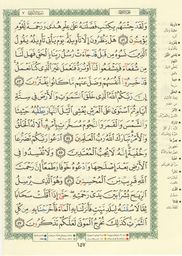 وَلَقَدْ جِئْنَٰهُم بِكِتَٰبٍ فَصَّلْنَٰهُ عَلَىٰ عِلْمٍ هُدًى وَرَحْمَةً لِّقَوْمٍ
يُؤْمِنُونَ ٥٢ هَلْ يَنظُرُونَ إِلَّا تَأْوِيلَهُۥ يَوْمَ يَأْتِى تَأْوِيلُهُۥ يَقُولُ
ٱلَّذِينَ نَسُوهُ مِن قَبْلُ قَدْ جَآءَتْ رُسُلُ رَبِّنَا بِٱلْحَقِّ فَهَل لَّنَا
مِن شُفَعَآءَ فَيَشْفَعُوا۟ لَنَآ أَوْ نُرَدُّ فَنَعْمَلَ غَيْرَ ٱلَّذِى كُنَّا نَعْمَلُ
قَدْ خَسِرُوٓا۟ أَنفُسَهُمْ وَضَلَّ عَنْهُم مَّا كَانُوا۟ يَفْتَرُونَ ٥٣
إِنَّ رَبَّكُمُ ٱللَّهُ ٱلَّذِى خَلَقَ ٱلسَّمَٰوَٰتِ وَٱلْأَرْضَ فِى سِتَّةِ
أَيَّامٍ ثُمَّ ٱسْتَوَىٰ عَلَى ٱلْعَرْشِ يُغْشِى ٱلَّيْلَ ٱلنَّهَارَ يَطْلُبُهُۥ حَثِيثًا
وَٱلشَّمْسَ وَٱلْقَمَرَ وَٱلنُّجُومَ مُسَخَّرَٰتٍۭ بِأَمْرِهِۦٓ أَلَا لَهُ ٱلْخَلْقُ
وَٱلْأَمْرُ تَبَارَكَ ٱللَّهُ رَبُّ ٱلْعَٰلَمِينَ ٥٤ ٱدْعُوا۟ رَبَّكُمْ تَضَرُّعًا
وَخُفْيَةً إِنَّهُۥ لَا يُحِبُّ ٱلْمُعْتَدِينَ ٥٥ وَلَا تُفْسِدُوا۟ فِى
ٱلْأَرْضِ بَعْدَ إِصْلَٰحِهَا وَٱدْعُوهُ خَوْفًا وَطَمَعًا إِنَّ رَحْمَتَ
ٱللَّهِ قَرِيبٌ مِّنَ ٱلْمُحْسِنِينَ ٥٦ وَهُوَ ٱلَّذِى يُرْسِلُ
ٱلرِّيَٰحَ بُشْرًۢا بَيْنَ يَدَىْ رَحْمَتِهِۦ حَتَّىٰٓ إِذَآ أَقَلَّتْ سَحَابًا
ثِقَالًا سُقْنَٰهُ لِبَلَدٍ مَّيِّتٍ فَأَنزَلْنَا بِهِ ٱلْمَآءَ فَأَخْرَجْنَا بِهِۦ مِن كُلِّ
ٱلثَّمَرَٰتِ كَذَٰلِكَ نُخْرِجُ ٱلْمَوْتَىٰ لَعَلَّكُمْ تَذَكَّرُونَ ٥٧
١٥٧